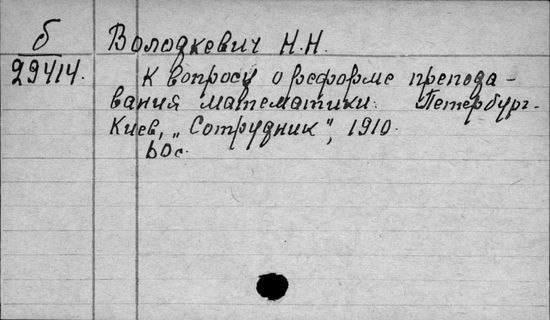 б Володкевич Н.Н.
29414. К вопросу о реформе препода-
вания математики. Петербург-
Киев, „Сотрудник", 1910.
60с.